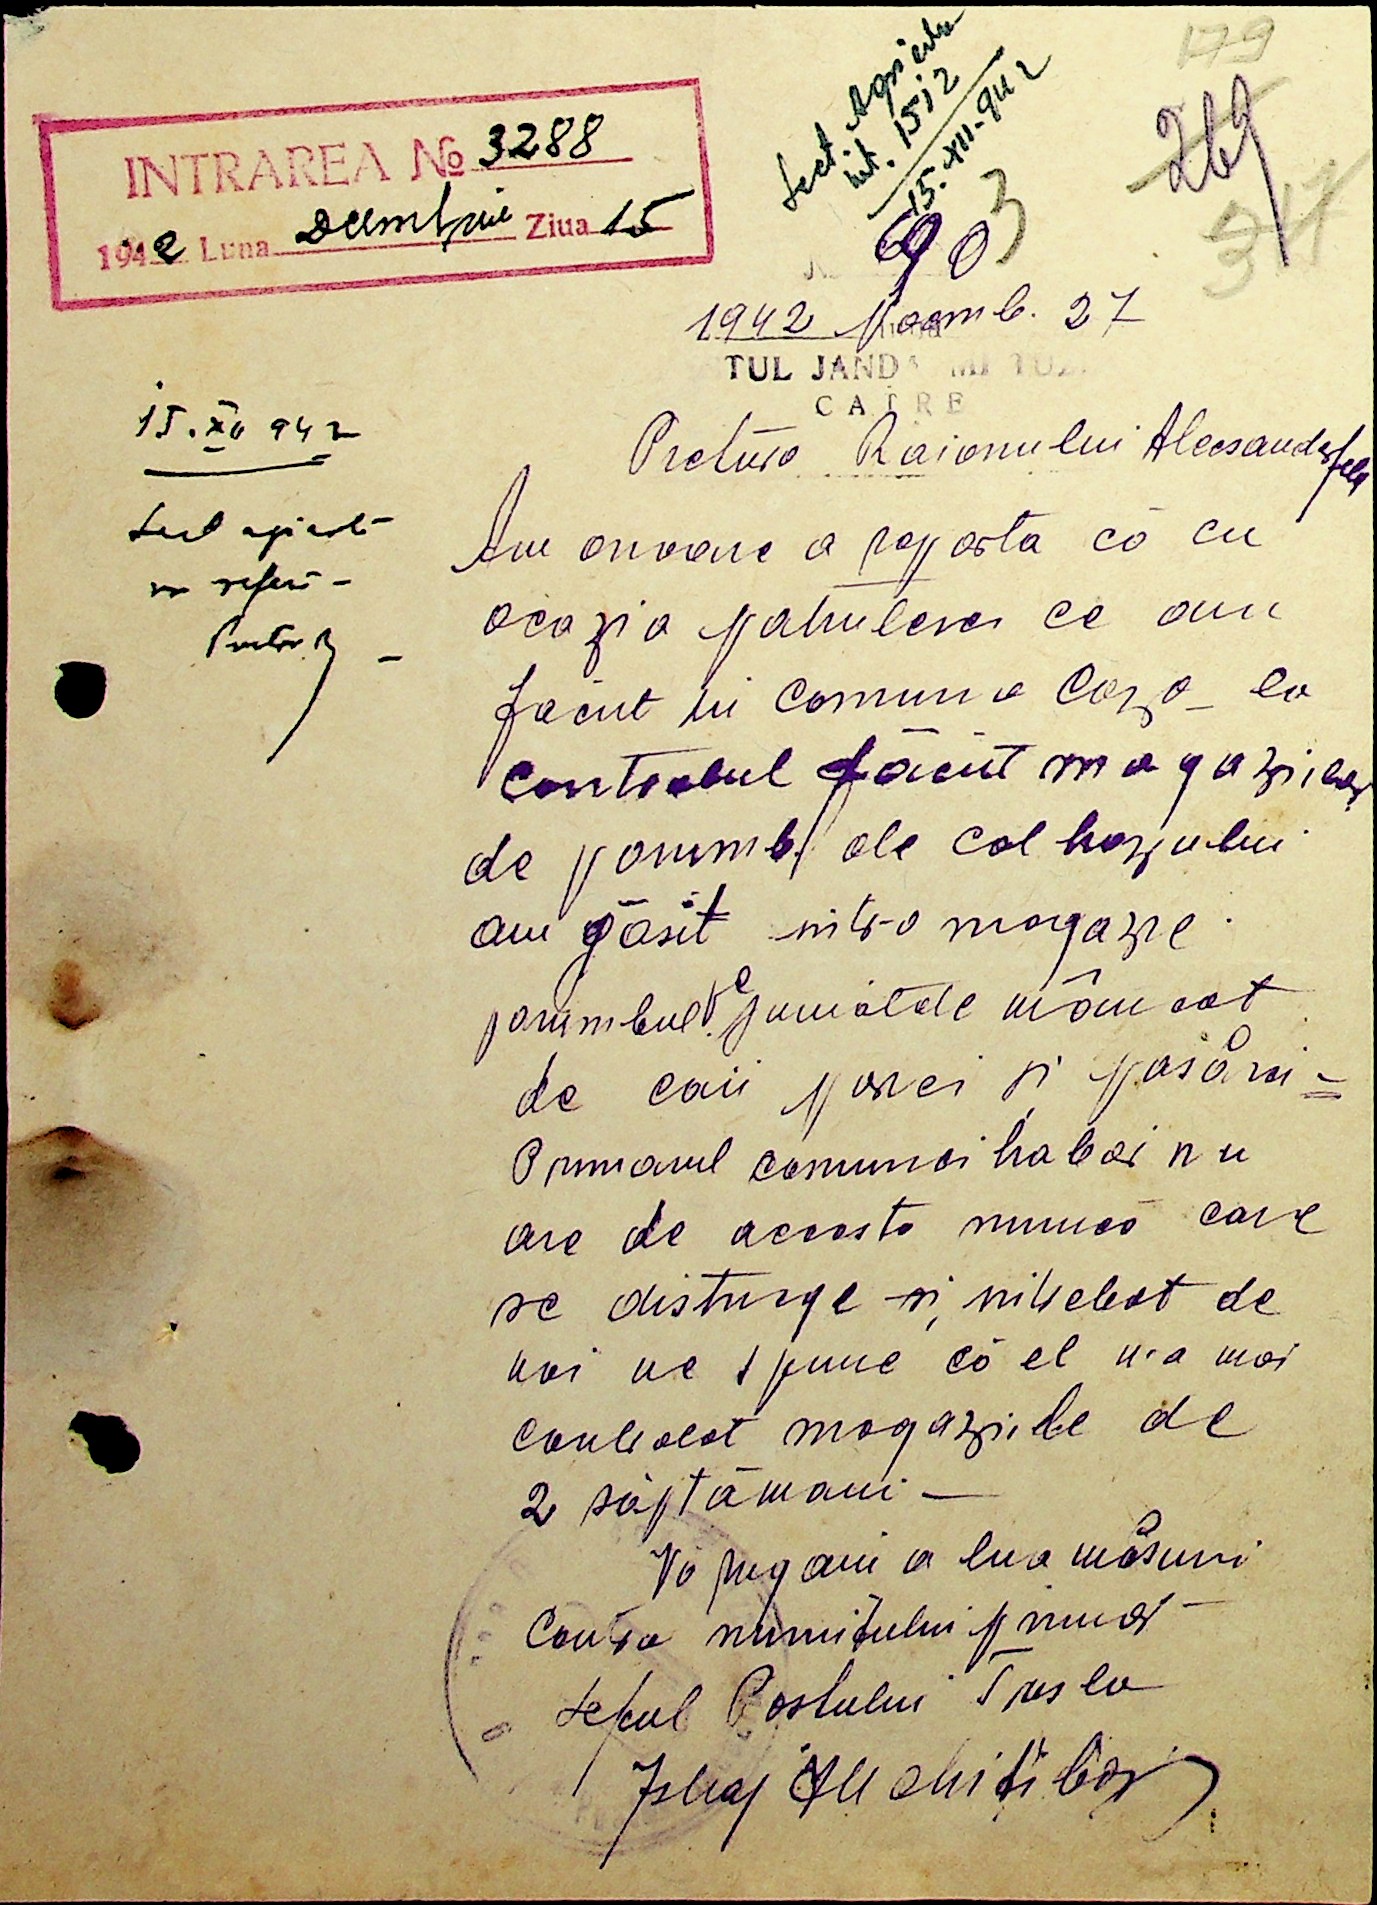 179
269
INTRAREA No 3288
1942 Luna Decembrie Ziua 15
Sect. Agricola
int. 1512
15.XII.942
903
1942 Noemb. 27
TUL JANDARMI TUZ
CATRE
Pretura Raionului Alecsanderfeld
15.XII 942
Sect agricol
va referi -
Pretor
Am onoare a raporta că cu
ocazia patrulerei ce am
făcut în comuna la
controlul făcut magaziilor
de porumb ale colhozului
am găsit intr-o magazie
porumbul pe jumătate mâncat
de caii porci și pasări =
Primarul comunei habar nu
are de aceasta muncă care
se distruge și, intrebat de
noi ne spune că el n-a mai
controlat magaziile de
2 săptămani —
Vă rugam a lua măsuri
Contra numitului primar -
Șeful Postului